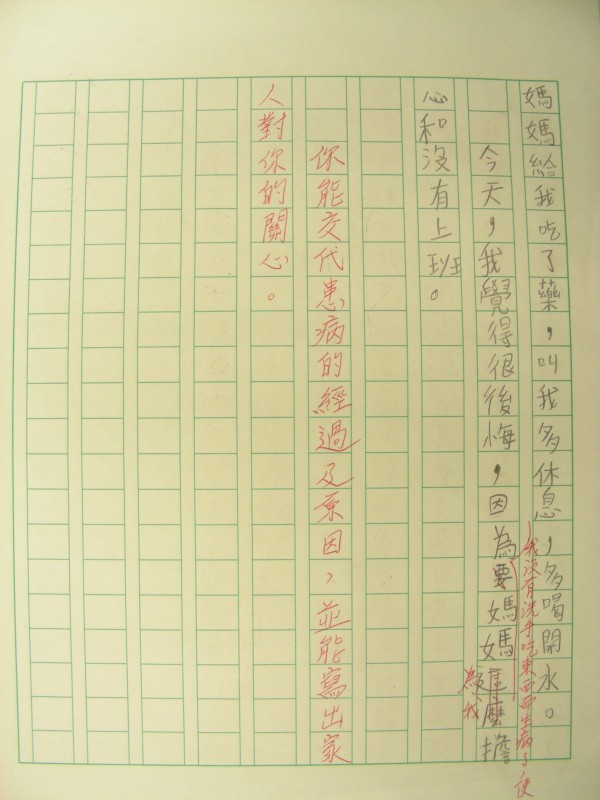 媽媽給我吃了藥，叫我多休息，多喝開水。
今天，我覺得很後悔，因為要媽媽這麼擔
我沒有洗手吃東西而生病了使
為我
心和沒有上班。
你能交代患病的經過及原因，並能寫出家
人對你的關心。